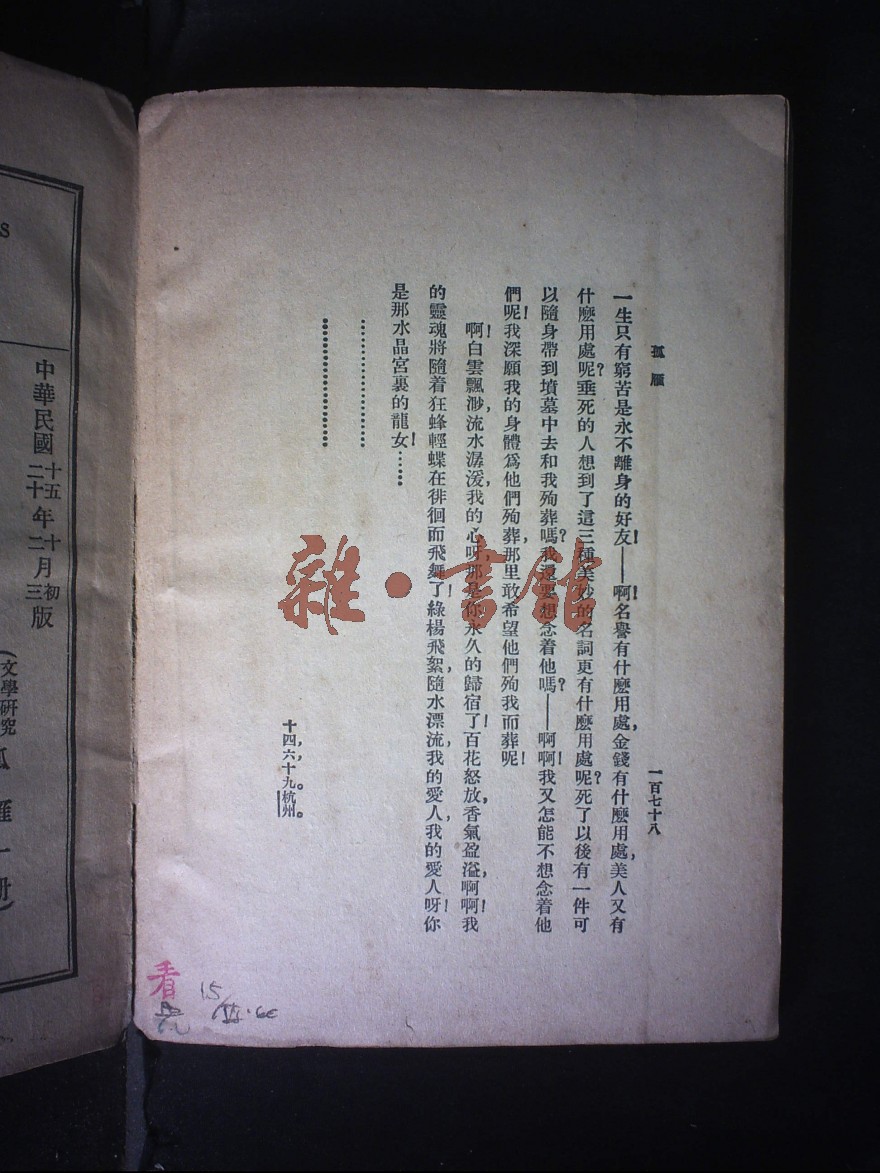 孤雁
一百七十八
一生只有窮苦是永不離身的好友！——啊！名譽有什麽用處，金錢有什麽用處，美人又有
什麽用處呢？垂死的人想到了這三種美妙的名詞更有什麽用處呢？死了以後有一件可
以隨身帶到墳墓中去和我殉葬嗎？我還要想念着他嗎？——啊啊！我又怎能不想念着他
們呢！我深願我的身體爲他們殉葬，那里敢希望他們殉我而葬呢！
啊！白雲飄渺，流水潺湲，我的心呀，那是你永久的歸宿了！百花怒放，香氣盈溢，啊啊！我
的靈魂將隨着狂蜂輕蝶在徘徊而飛舞了！綠楊飛絮，隨水漂流，我的愛人，我的愛人呀！你
是那水晶宮裏的龍女！……
……………………
……………………
十四，六，十九。杭州。
中華民國十五年十月初版
二十二三
（文學研究
孤雁一册）
雜·書館
看
15